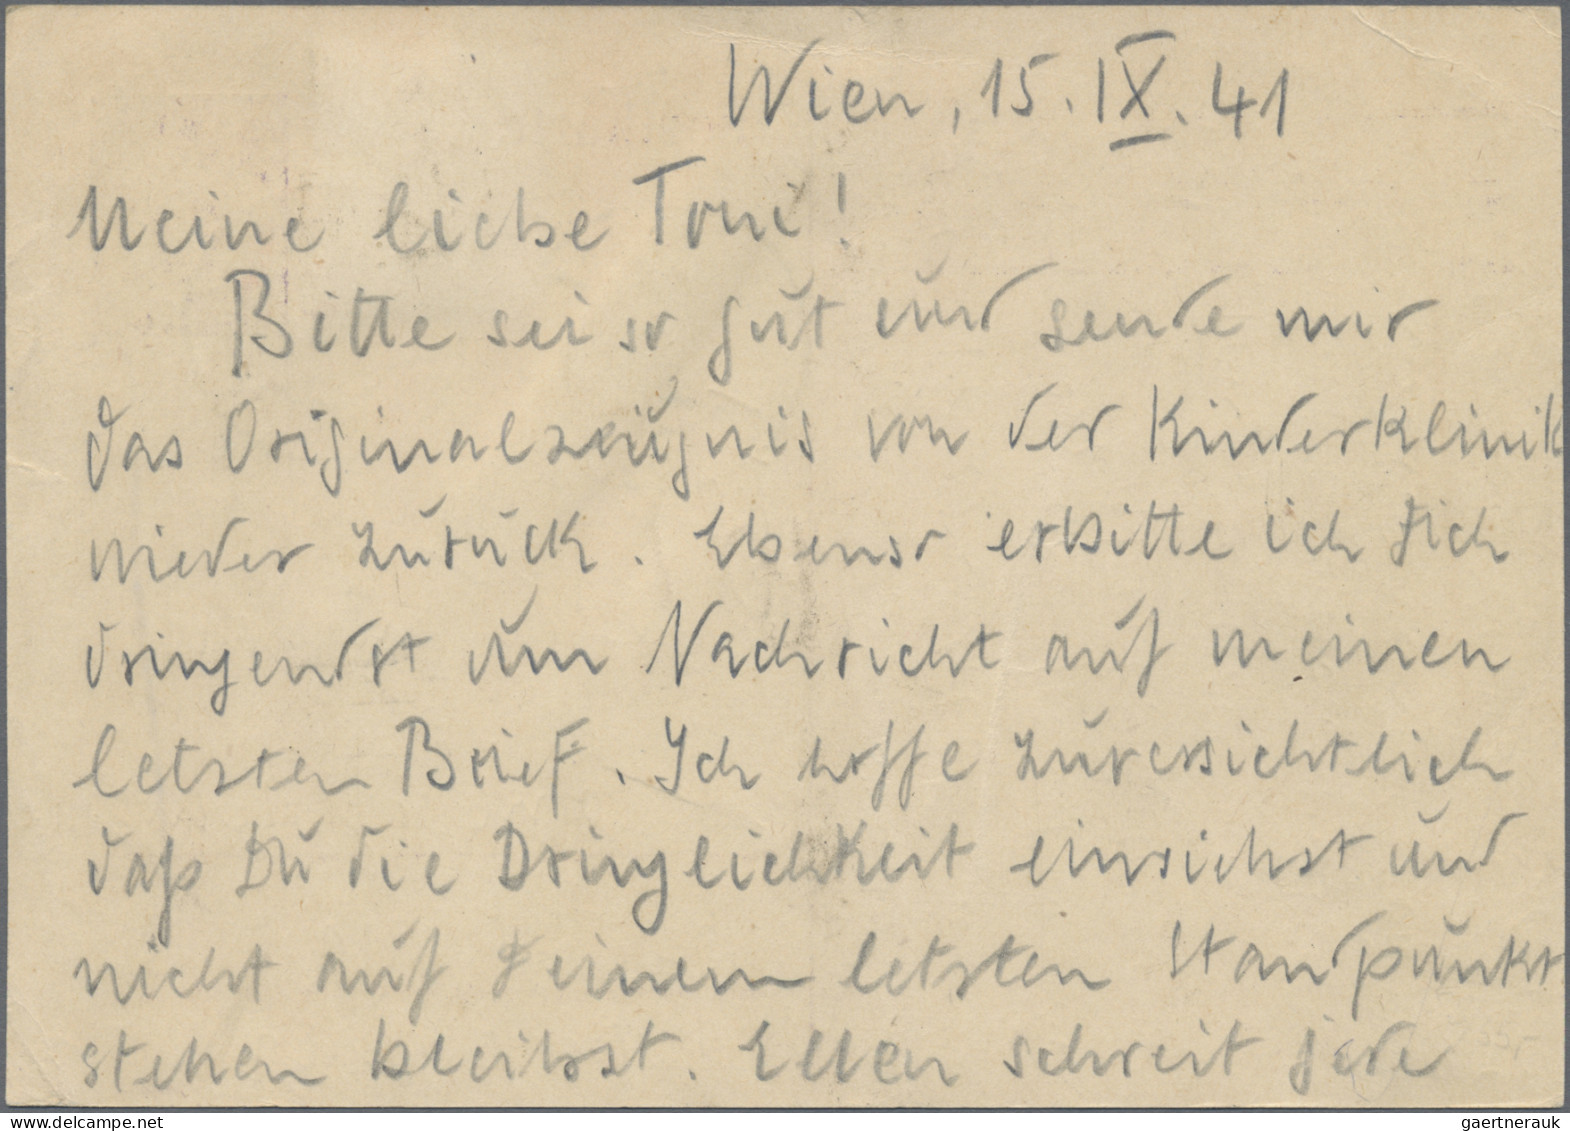 Wien, 15. IX. 41
Meine liebe Toni!
Bitte sei so gut und sende mir
das Originalzeugnis von der Kinderklinik
wieder zurück. Ebenso erbitte ich Dich
dringendst um Nachricht auf meinen
letzten Brief. Ich hoffe zuversichtlich
daß Du die Dringlichkeit einsiehst und
nicht auf Deinem letzten Standpunkt
stehen bleibst. Ellen schreit jede
www.delcampe.net
gaertnerauk